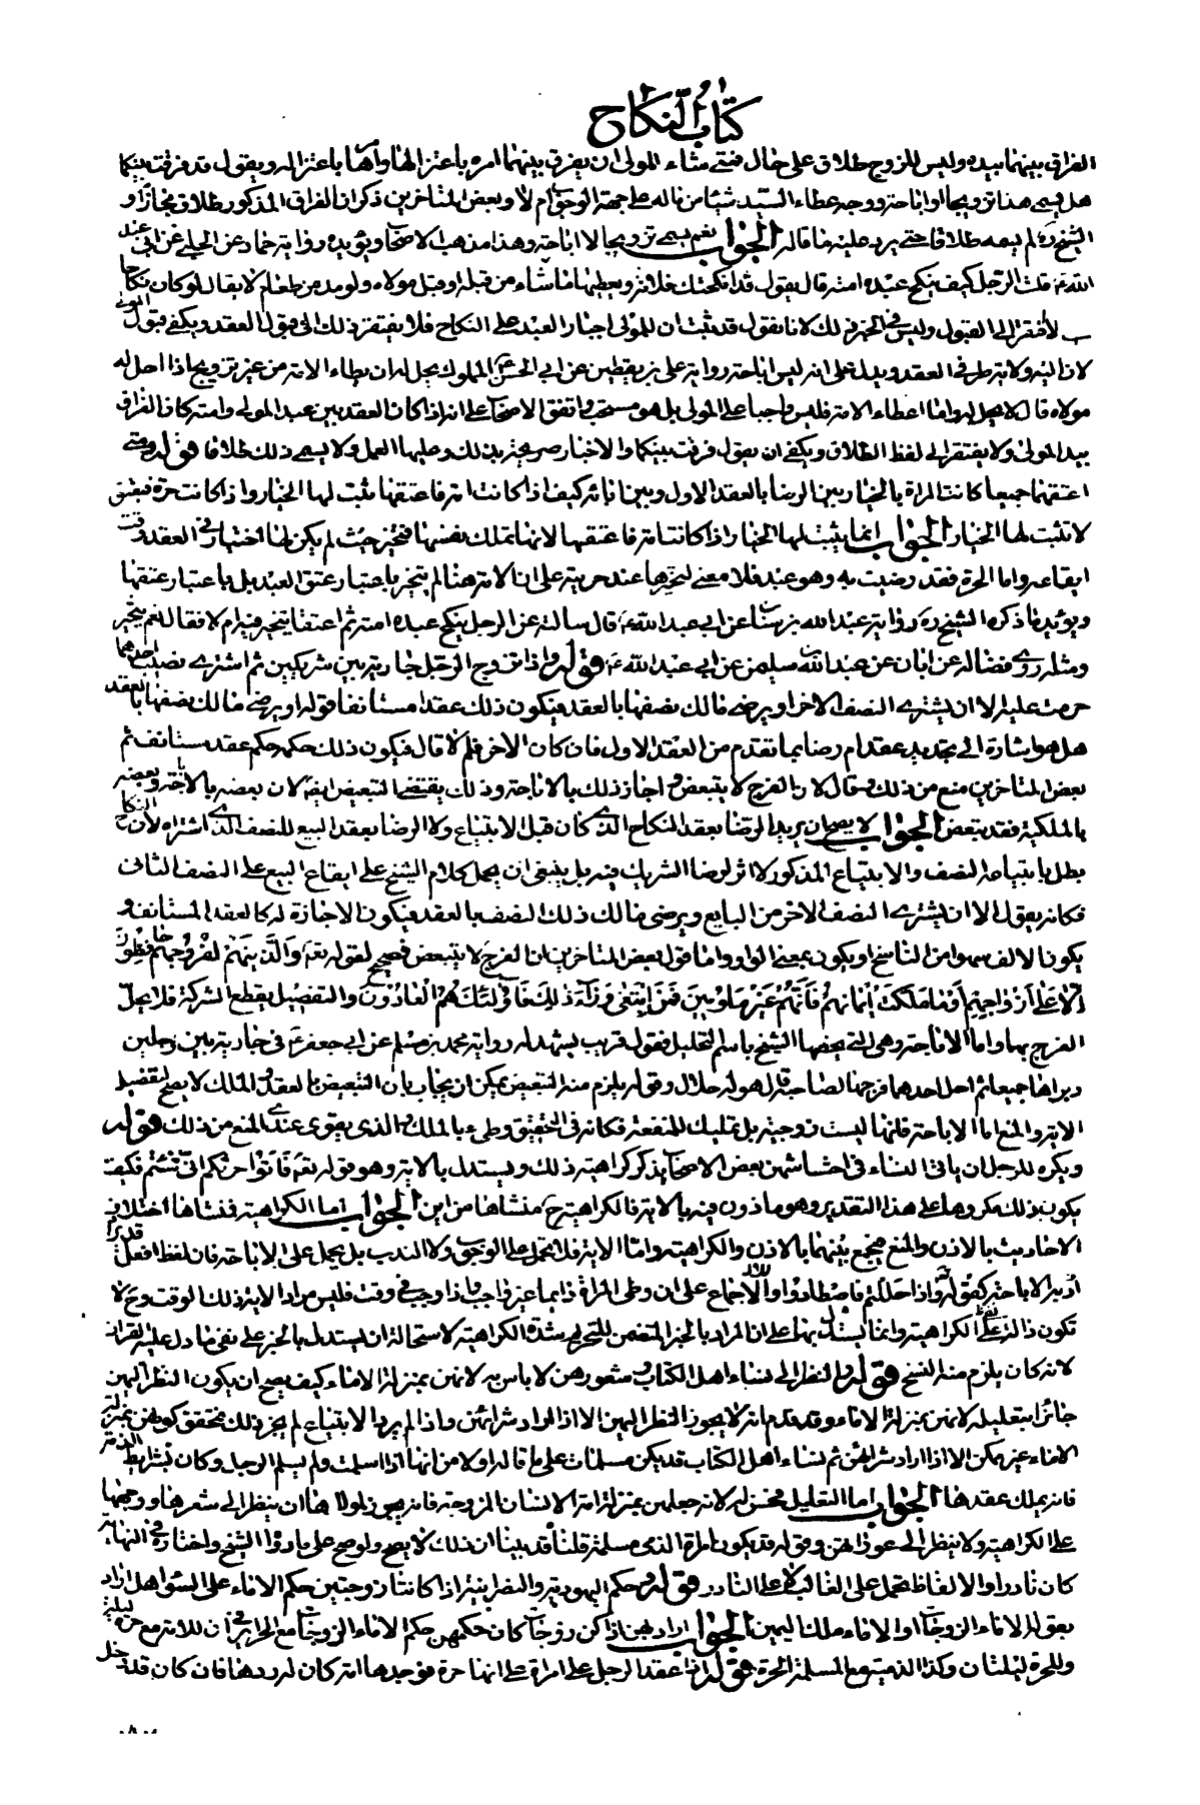 كتاب النكاح
الفراق بينهما بيده وليس للزوج طلاق على حال فمتى شاء المولى ان يفرق بينهما امره باعتزالها وامرها باعتزاله ويقول قد فرقت بينكما
هل يسمى هذا تزويجا او اباحة ووجه عطاء السيد شيئا من ماله على جهة الوجوب ام لا وبعض المتأخرين ذكر ان الفراق المذكور طلاق مجازا و
الشيخ ره لم يسمه طلاقا حتى يرد عليه ما قاله الجواب نعم يسمى تزويجا لا اباحة وهذا مذهب الاصحاب ويؤيده رواية حماد عن الحلبي عن ابي عبد
الله ع قلت الرجل كيف ينكح عبده امته قال يقول قد انكحتك فلانة ويعطيها ما شاء من قبله او قبل مولاه ولو مد من طعام لا يقال لو كان نكاحا
لافتقر الى القبول وليس في الخبر ذلك لانا نقول قد ثبت ان للمولى اجبار العبد على النكاح فلا يفتقر ذلك الى قبول العقد ويكفي قبول المولى
لان اليه ولاية طرفي العقد ويدل على انه ليس اباحة رواية علي بن يقطين عن ابي الحسن ع المملوك يحل له ان يطاء الامة من غير تزويج اذا احل له
مولاه قال لا يحل له واما اعطاء الامة فليس واجبا على المولى بل هو مستحب واتفق الاصحاب على انه اذا كان العقد بين عبد المولى وامته كان الفراق
بيد المولى ولا يفتقر الى لفظ الطلاق ويكفي ان يقول فرقت بينكما والاخبار صريحة بذلك وعليها العمل ولا يسمى ذلك طلاقا قوله ومتى
اعتقهما جميعا كانت المراة بالخيار بين الرضا بالعقد الاول وبين ابائه كيف اذا كانت امة فاعتقها يثبت لها الخيار واذا كانت حرة فبعتق
لا تثبت لها الخيار الجواب انما يثبت لها الخيار اذا كانت امة فاعتقها لانها تملك نفسها فتخير حيث لم يكن لها اختيار في العقد وقت
ايقاعه واما الحرة فقد رضيت به وهو عبد فلا معنى لتخيرها عند حريته على ان الامة هنا لم تتخير باعتبار عتق العبد بل باعتبار عتقها
ويؤيد ما ذكره الشيخ ره رواية عبد الله بن سنان عن ابي عبد الله ع قال سالته عن الرجل ينكح عبده امته ثم اعتقها يتخير فيه ام لا فقال نعم يتخير
ومثله روى فضالة عن ابان عن عبد الله بن سليمن عن ابي عبد الله ع قوله واذا تزوج الرجل جارية بين شريكين ثم اشترى نصيب احدهما
حرمت عليه الا ان يشترى النصف الاخر او يرضى مالك نصفها بالعقد فيكون ذلك عقدا مستانفا قوله او يرضى مالك نصفها بالعقد
هل هو اشارة الى تجديد عقد ام رضا بما تقدم من العقد الاول فان كان الاخر فلم قال فيكون ذلك حكمه حكم عقد مستانف ثم
بعض المتاخرين منع من ذلك وقال لان الفرج لا يتبعض و اجاز ذلك بالاباحة وذلك يقتضي التبعيض ايضا لان بعضه بالاباحة وبعضه
بالملكية فقد تبعض الجواب لا يصح ان يريد الرضا بعقد النكاح الذي كان قبل الابتياع ولا الرضا بعقد البيع للنصف الذي اشتراه لان النكاح
بطل بابتياعه النصف والابتياع المذكور لا اثر لرضا الشريك فيه بل ينبغي ان يحمل كلام الشيخ على ايقاع البيع على النصف الثاني
فكانه يقول الا ان يشترى النصف الاخر من البايع ويرضى مالك ذلك النصف بالعقد فيكون الاجازة له كالعقد المستانف و
يكون الالف سهوا من الناسخ او يكون بمعنى الواو واما قول بعض المتاخرين ان الفرج لا يتبعض فصحيح لقوله تعه والذينهم لفروجهم حافظون
الا على ازواجهم او ما ملكت ايمانهم فانهم غير ملومين فمن ابتغى وراء ذلك فاولئك هم العادون والتفصيل يقطع الشركة فلا يحل
الفرج بهما واما الاباحة وهي التي يخصها الشيخ باسم التحليل فقوله قريب يشهد له رواية محمد بن مسلم عن ابي جعفر ع في جارية بين رجلين
دبراها جميعا ثم احل احدهما فرجها لصاحبه قال هو له حلال وقوله يلزم منه التبعيض يمكن ان يجاب بان التبعيض بالعقد والملك لا يصح لتفصيل
الاية والمنع اما الاباحة فانها ليست زوجية بل تمليك للمنفعة فكانه في الحقيقة وطىء بالملك والذي يقوى عندي المنع من ذلك قوله
ويكره للرجل ان ياتي النساء في احشاشهن بعض الاصحاب يذكر كراهية ذلك ويستدل بالاية وهو قوله تعه فاتوا حرثكم انى شئتم فكيف
يكون ذلك مكروها على هذا التقدير وهو ماذون فيه بالاية فالكراهية ح منشاها من اين الجواب اما الكراهية فمنشاها اختلاف
الاحاديث بالاذن والمنع فيجمع بينهما بالاذن والكراهية واما الاية فلا تحمل على الوجوب ولا الندب بل يحمل على الاباحة فان لفظ افعل قد يرد
الاباحة كقوله تعه واذا حللتم فاصطادوا والاجماع على ان وطى المراة دائما غير واجب واذا وجب في وقت فليس مرادا لاية ذلك الوقت وح لا
تكون دالة على الكراهية وانما يستدل بها على ان المراد بالخبر المتضمن للتحريم شدة الكراهية لاستحالة ان يستدل بالخبر على نفي ما دل عليه القران
لانه كان يلزم منه النسخ قوله والنظر الى نساء اهل الكتاب وشعورهن لا باس به لانهن بمنزلة الاماء كيف يصح ان يكون النظر اليهن
جائزا بتعليله لانهن بمنزلة الاماء وقد قدم انه لا يجوز النظر اليهن الا اذا اراد شرائهن واذا لم يرد الابتياع لم يجز ذلك فتحقق كونهن بمنزلة
الاماء غير ممكن الا اذا اراد شرائهن ثم نساء اهل الكتاب قد يكن مسلمات على ما قاله اولا من انها اذا اسلمت ولم يسلم الرجل وكان بشرايط الذمة
فانه يملك عقدها الجواب اما التعليل فحسن لانه جعلهن بمنزلة امة الانسان المزوجة فانه يجوز لمولاها ان ينظر الى شعرها ووجهها
على الكراهية ولا ينظر الى عوراتهن وقوله قد يكون امراة الذمي مسلمة قلنا قد بينا ان ذلك لا يصح ولو صح على ما رواه الشيخ واختاره في النهاية
كان نادرا والالفاظ تحمل على الغالب لا على النادر قوله وحكم اليهودية والنصرانية اذا كانتا زوجتين حكم الاماء على السواء هل اراد
بقوله الاماء الزوجات او الاماء ملك اليمين الجواب اراد بهن اذا كن زوجات كان حكمهن حكم الاماء الزوجات مع الحرائر في ان للامة مع حرة ليلة
وللحرة ليلتان وكذا الذمية مع المسلمة الحرة قوله اذا عقد الرجل على امراة على انها حرة فوجدها امة كان له ردها فان كان قد دخل